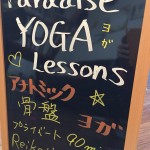 Paradise
YOGA ヨガ
Lessons
アナトミック
骨盤 ヨガ
プライベート 90min
Reiko